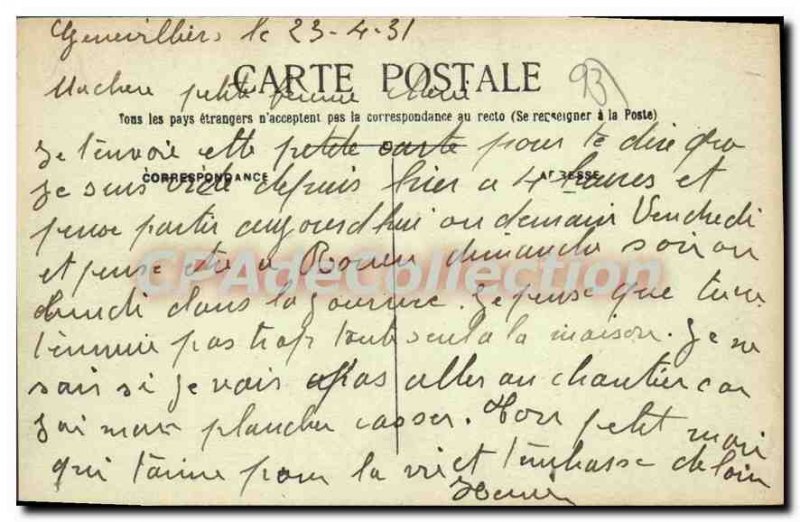 Genevilliers le 23-4-31
CARTE POSTALE
93
Ma chere petite femme cherie
Tous les pays étrangers n'acceptent pas la correspondance au recto (Se renseigner à la Poste)
Je t'envoie cette petite carte pour te dire que
CORRESPONDANCE
ADRESSE
Je suis vide depuis hier a 4 heures et
pense partir aujourd'hui ou demain Vendredi
et pense etre a Rouen dimanche soir ou
CPAdeCollection
Lundi dans la journée. Je pense que tu ne
t'ennuie pas trop toute seul a la maison. Je ne
sais si je vais pas aller au chantier car
j'ai mon plancher casser. Ton petit mari
qui t'aime pour la vie et t'embrasse de loin
Henri